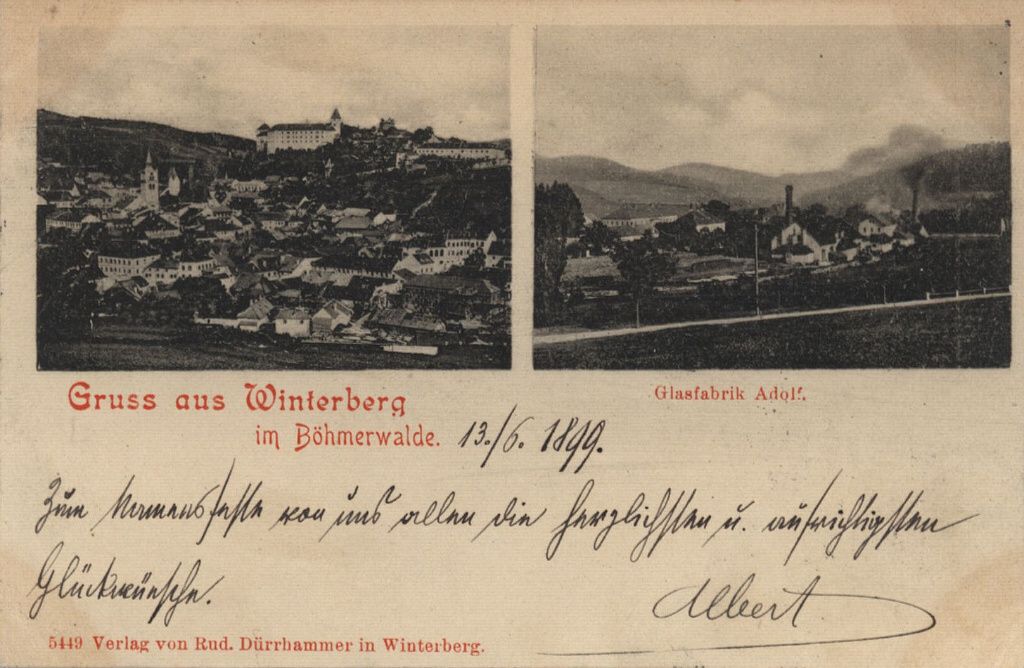 Gruss aus Winterberg
im Böhmerwalde.
Glasfabrik Adolf.
13./6. 1899.
Zum Namensfeste von uns allen die herzlichsten u. aufrichtigsten
Glückwünsche.
Albert
5449 Verlag von Rud. Dürrhammer in Winterberg.